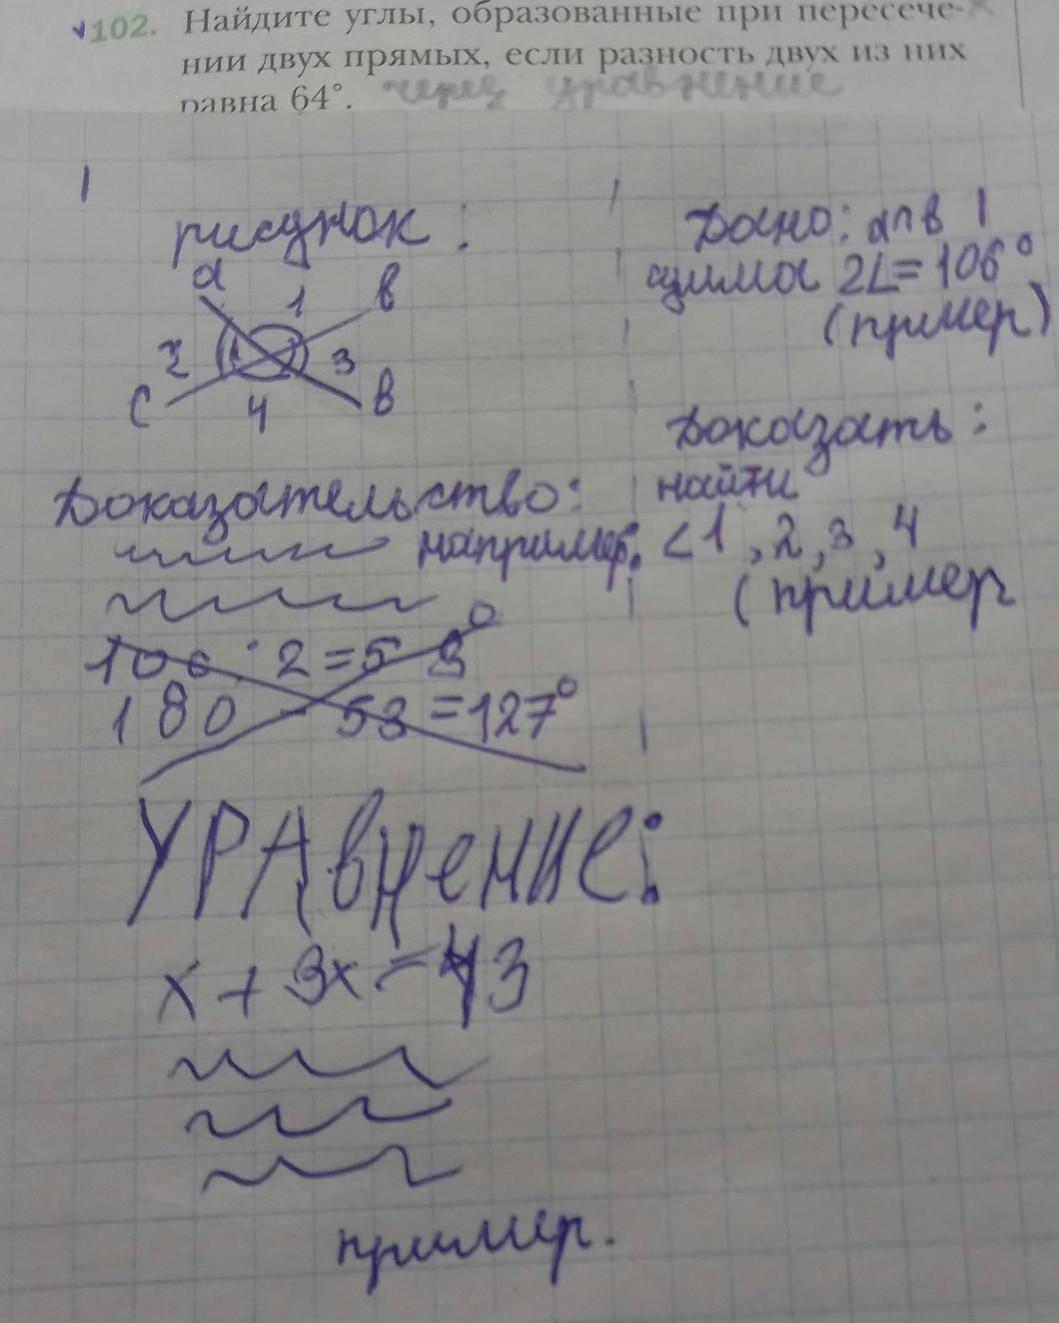 102. Найдите углы, образованные при пересече-
нии двух прямых, если разность двух из них
равна 64°. через уравнение
рисунок:
a
1
в
2
3
C
4
В
Дано: a∩в
сумма 2∠=106°
(пример)
Доказать:
найти
<1, 2, 3, 4
(пример
Доказательство:
например:
106:2=53°
180-53=127°
Уравнение:
x+3x=43
пример.